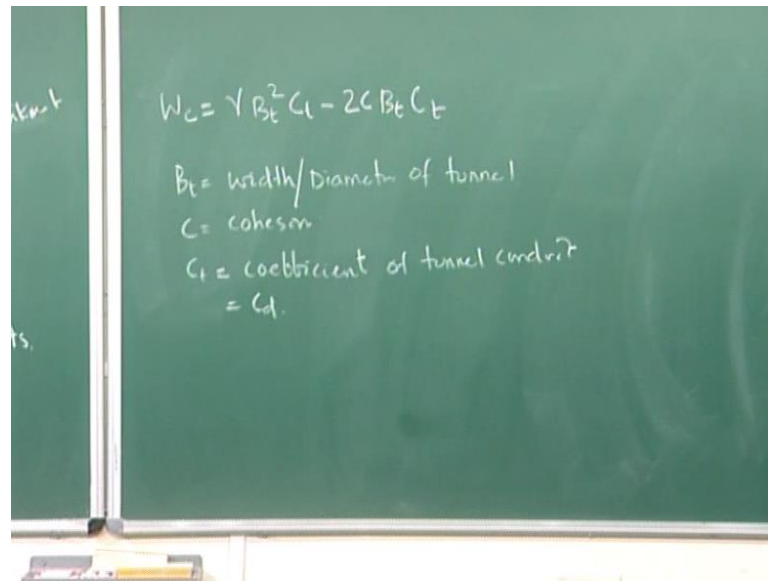 Wc = γ Bt² Ct - 2C Bt Ct
Bt = width/Diameter of tunnel
C = cohesion
Ct = coefficient of tunnel conduit
= Cd.
ts.